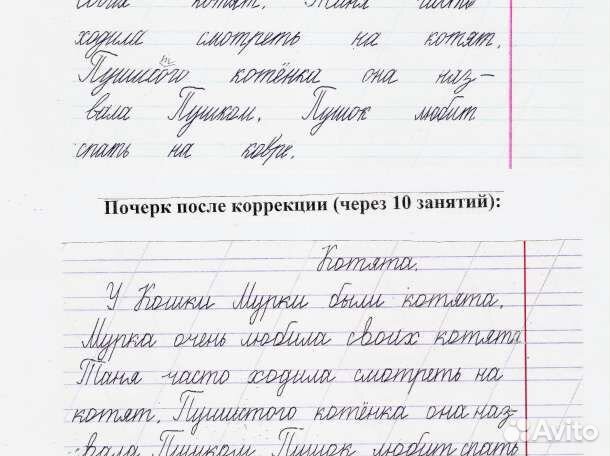 котят. Таня часто
ходила смотреть на котят.
Пушистого котёнка она наз-
вала Пушком. Пушок любит
спать на ковре.
Почерк после коррекции (через 10 занятий):
Котята.
У Кошки Мурки были котята.
Мурка очень любила своих котят.
Таня часто ходила смотреть на
котят. Пушистого котёнка она наз-
вала Пушком. Пушок любит спать
Avito